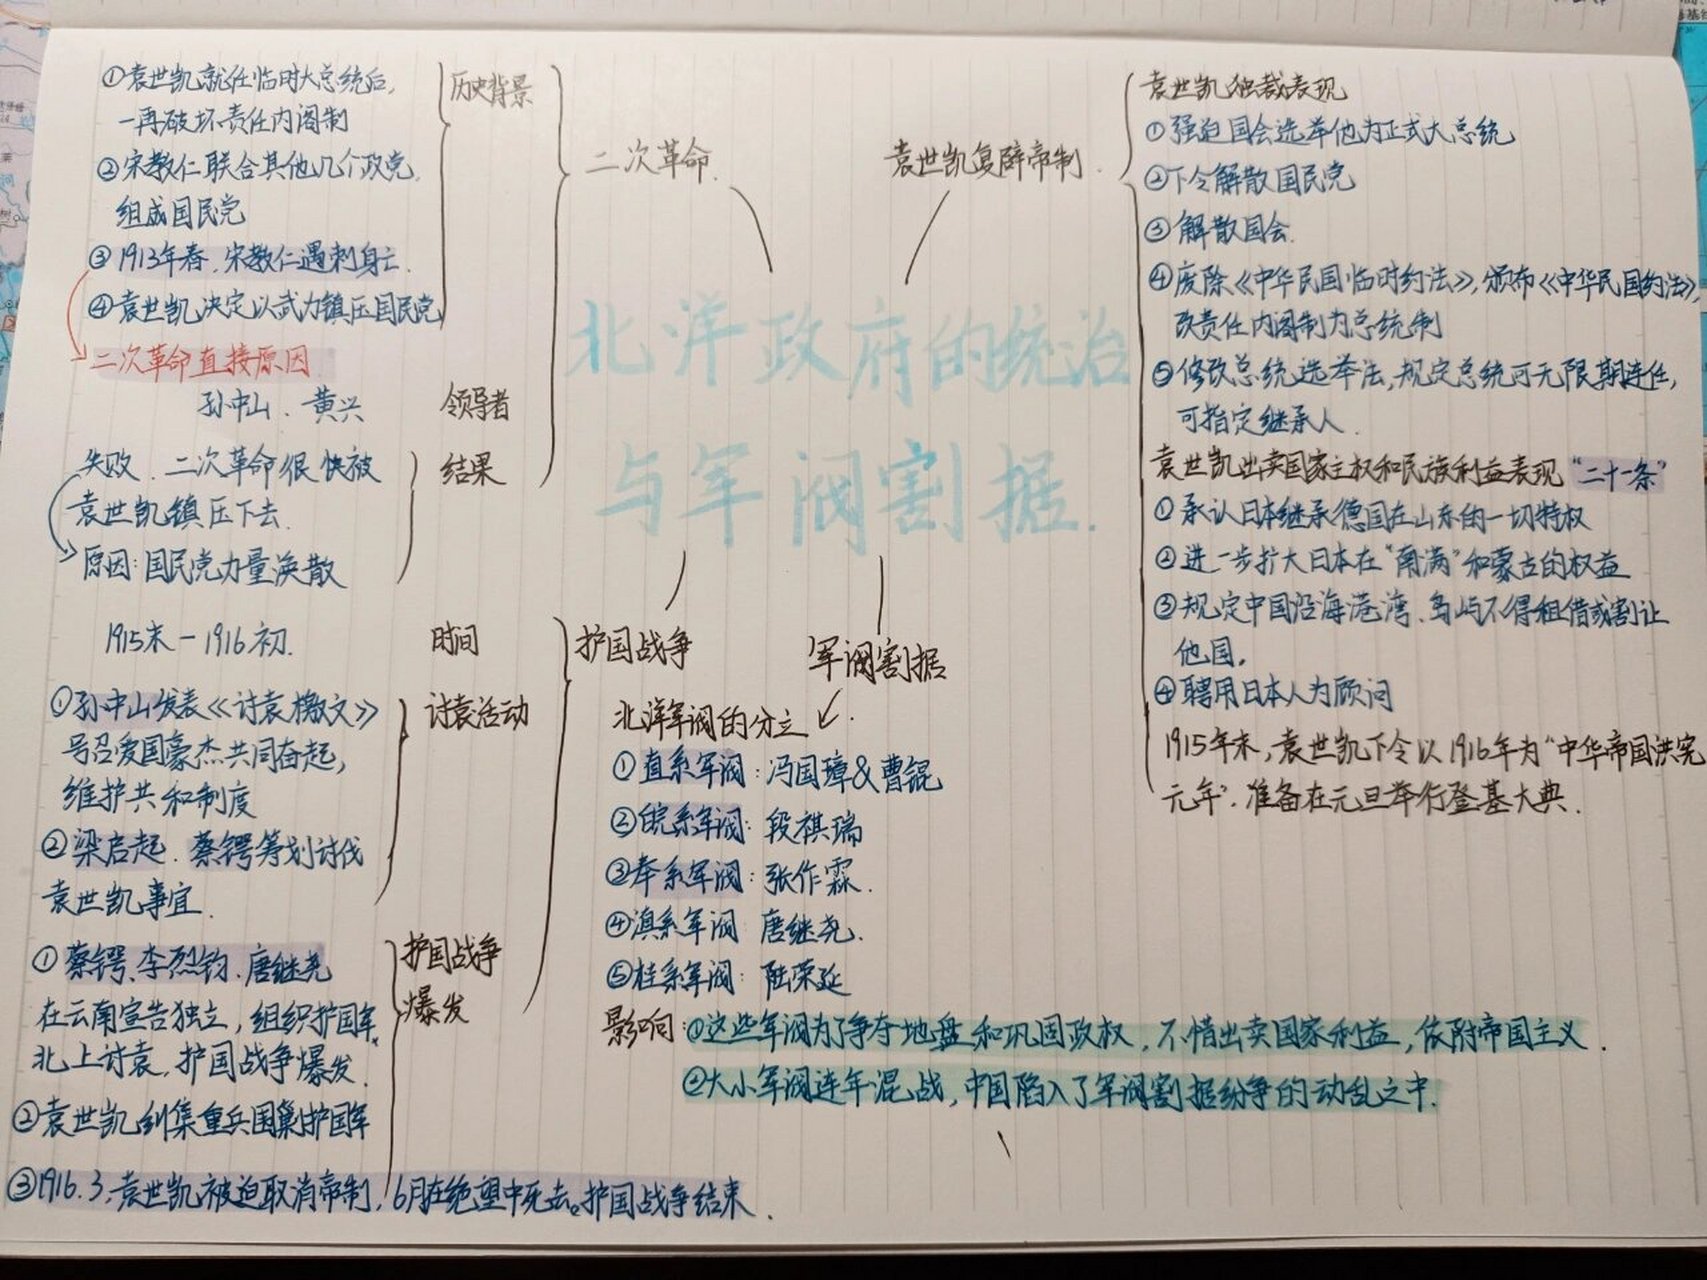 北洋政府的统治
与军阀割据.
二次革命.
历史背景
①袁世凯就任临时大总统后,
一再破坏责任内阁制
②宋教仁联合其他几个政党.
组成国民党
③1913年春.宋教仁遇刺身亡.
④袁世凯决定以武力镇压国民党
二次革命直接原因
领导者
孙中山、黄兴
结果
失败.二次革命很快被
袁世凯镇压下去.
原因:国民党力量涣散
袁世凯复辟帝制.
袁世凯独裁表现
①强迫国会选举他为正式大总统
②下令解散国民党
③解散国会.
④废除《中华民国临时约法》,颁布《中华民国约法》,
改责任内阁制为总统制
⑤修改总统选举法,规定总统可无限期连任,
可指定继承人.
袁世凯出卖国家主权和民族利益表现“二十一条”
①承认日本继承德国在山东的一切特权
②进一步扩大日本在“南满”和蒙古的权益
③规定中国沿海港湾、岛屿不得租借或割让
他国.
④聘用日本人为顾问
1915年末,袁世凯下令以1916年为“中华帝国洪宪
元年”.准备在元旦举行登基大典.
护国战争
时间
1915末-1916初.
讨袁活动
①孙中山发表《讨袁檄文》
号召爱国豪杰共同奋起,
维护共和制度
②梁启起、蔡锷筹划讨伐
袁世凯事宜.
护国战争
爆发
①蔡锷、李烈钧、唐继尧
在云南宣告独立,组织护国军,
北上讨袁,护国战争爆发.
②袁世凯纠集重兵围剿护国军
③1916.3,袁世凯被迫取消帝制,6月在绝望中死去。护国战争结束.
军阀割据
北洋军阀的分立
①直系军阀:冯国璋&曹锟
②皖系军阀:段祺瑞
③奉系军阀:张作霖.
④滇系军阀 唐继尧.
⑤桂系军阀:陆荣延
影响:①这些军阀为了争夺地盘和巩固政权,不惜出卖国家利益,依附帝国主义.
②大小军阀连年混战,中国陷入了军阀割据纷争的动乱之中.